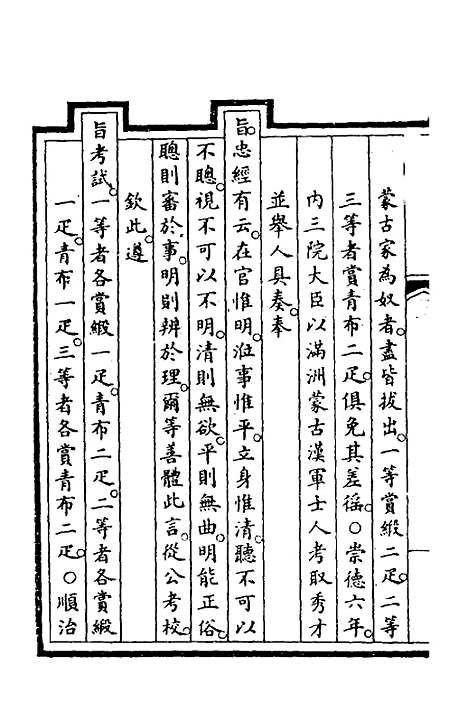 蒙古家為奴者。盡皆拔出。一等賞緞二疋。二等
三等者賞青布二疋。俱免其差徭。○崇德六年。
內三院大臣以滿洲蒙古漢軍士人考取秀才
並舉人具奏。奉
旨。忠經有云。在官惟明。涖事惟平。立身惟清。聽不可以
不聰。視不可以不明。清則無欲。平則無曲。明能正俗。
聰則審於事。明則辨於理。爾等善體此言。從公考校。
欽此。遵
旨考試。一等者各賞緞一疋。青布二疋。二等者各賞緞
一疋。青布一疋。三等者各賞青布二疋。○順治